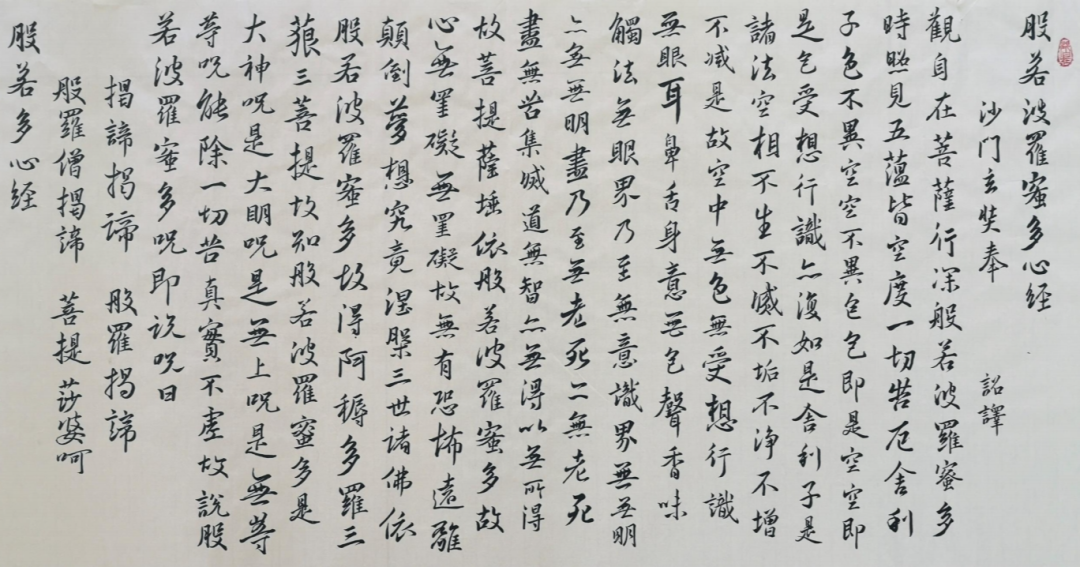 般若波羅蜜多心经
沙门玄奘奉 詔譯
觀自在菩薩行深般若波羅蜜多
時照見五蕴皆空度一切苦厄舍利
子色不異空空不異色色即是空空即
是色受想行識亦復如是舍利子是
諸法空相不生不滅不垢不浄不增
不减是故空中无色無受想行識
無眼耳鼻舌身意无色聲香味
觸法无眼界乃至無意識界無无明
亦无无明盡乃至无老死亦無老死
盡無苦集滅道無智亦無得以无所得
故菩提薩埵依般若波羅蜜多故
心無罣礙無罣礙故無有恐怖遠離
顛倒夢想究竟涅槃三世诸佛依
般若波羅蜜多故得阿耨多羅三
藐三菩提故知般若波羅蜜多是
大神呪是大明呪是無上呪是無等
等呪能除一切苦真實不虚故說般
若波羅蜜多呪即说呪曰
揭諦揭諦 般羅揭諦
般羅僧揭諦 菩提莎婆呵
般若多心经